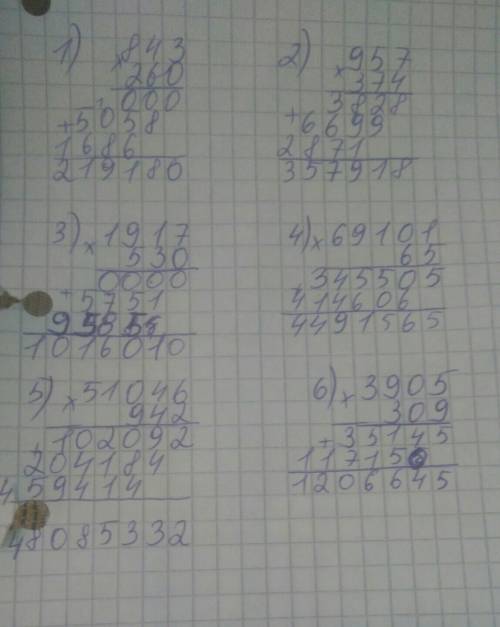 1) 843
× 260
000
+ 5058
1686
219180
2) 957
× 374
3828
+ 6699
2871
357918
3) × 1917
530
0000
+ 5751
9585
1016010
4) × 69101
65
345505
+ 414606
4491565
5) × 51046
942
+ 102092
204184
459414
48085332
6) × 3905
309
+ 35145
117150
1206645